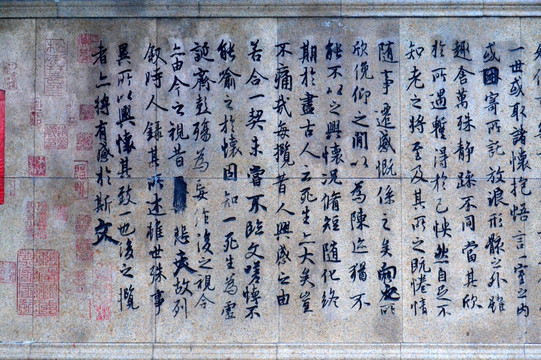 一世或取諸懷抱悟言一室之內
或因寄所託放浪形骸之外雖
趣舍萬殊靜躁不同當其欣
於所遇暫得於己怏然自足不
知老之將至及其所之既惓情
隨事遷感慨係之矣向之所
欣俛仰之間以為陳迹猶不
能不以之興懷況脩短隨化終
期於盡古人云死生亦大矣豈
不痛哉每攬昔人興感之由
若合一契未嘗不臨文嗟悼不
能喻之於懷固知一死生為虛
誕齊彭殤為妄作後之視今
亦由今之視昔悲夫故列
敘時人錄其所述雖世殊事
異所以興懷其致一也後之攬
者亦將有感於斯文